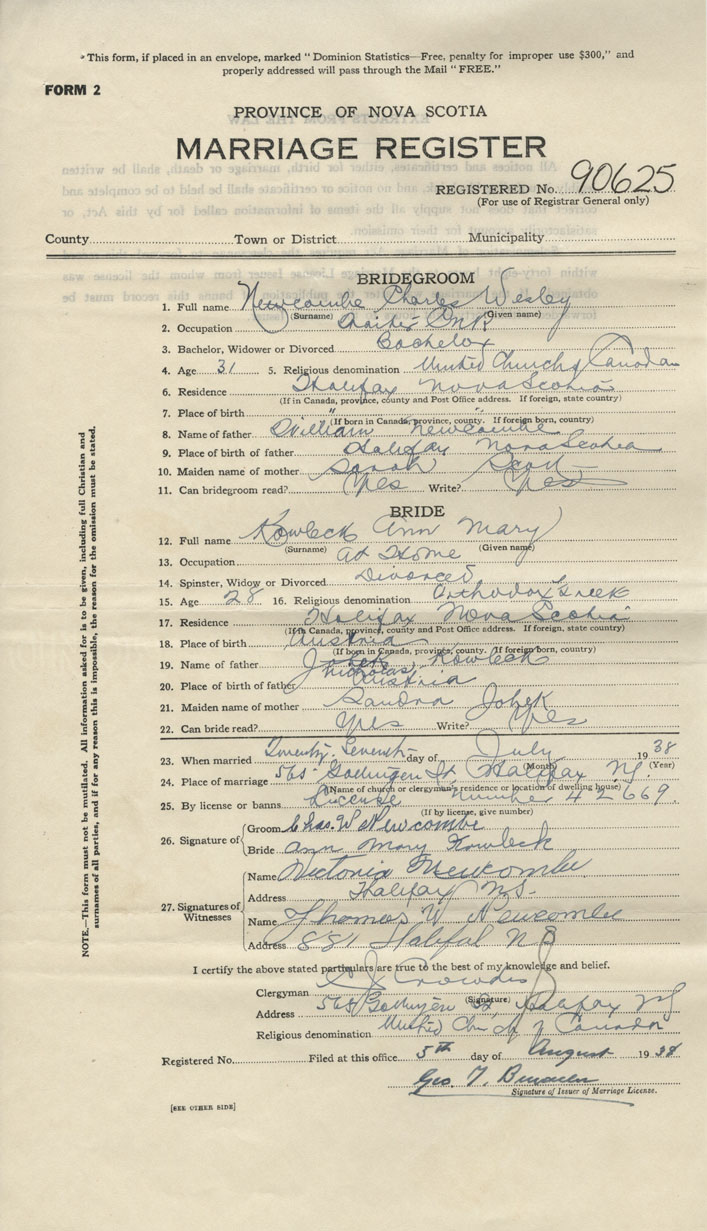 *This form, if placed in an envelope, marked "Dominion Statistics—Free, penalty for improper use $300," and
properly addressed will pass through the Mail "FREE."
FORM 2
PROVINCE OF NOVA SCOTIA
MARRIAGE REGISTER
REGISTERED No. 90625
(For use of Registrar General only)
County Town or District Municipality
BRIDEGROOM
1. Full name Newcombe Charles Wesley
(Surname) (Given name)
2. Occupation
3. Bachelor, Widower or Divorced Bachelor
4. Age 31 5. Religious denomination United Church of Canada
6. Residence Halifax Nova Scotia
(If in Canada, province, county and Post Office address. If foreign, state county)
7. Place of birth " "
(If born in Canada, province, county. If foreign born, country)
8. Name of father William Newcombe
9. Place of birth of father Halifax Nova Scotia
10. Maiden name of mother Sarah
11. Can bridegroom read? Yes Write? Yes
BRIDE
12. Full name Kowleck Ann Mary
(Surname) (Given name)
13. Occupation at Home
14. Spinster, Widow or Divorced Divorced
15. Age 28 16. Religious denomination Orthodox Greek
17. Residence Halifax Nova Scotia
(If in Canada, province, county and Post Office address. If foreign, state country)
18. Place of birth Austria
(If born in Canada, province, county. If foreign born, country)
19. Name of father Kowleck
Nicholas
20. Place of birth of father Austria
21. Maiden name of mother Sandra
22. Can bride read? Yes Write? Yes
23. When married Twenty-Seventh day of July 1938
(Month) (Year)
24. Place of marriage 565 Gottingen St Halifax NS.
(Name of church or clergyman's residence or location of dwelling house)
25. By license or banns License Number 42669.
(If by license, give number)
26. Signature of
Groom Chas. W Newcombe
Bride Ann Mary Kowleck
27. Signatures of Witnesses
Name Victoria Newcombe
Address Halifax N.S.
Name Thomas W Newcombe
Address 881 Halifax N S
I certify the above stated particulars are true to the best of my knowledge and belief.
Clergyman
(Signature)
Address 565 Gottingen St Halifax NS
Religious denomination United Church of Canada
Registered No. Filed at this office 5th day of August 1938
Geo. T.
Signature of Issuer of Marriage License.
[SEE OTHER SIDE]
NOTE.—This form must not be mutilated. All information asked for is to be given, including full Christian and
surnames of all parties, and if for any reason this is impossible, the reason for the omission must be stated.